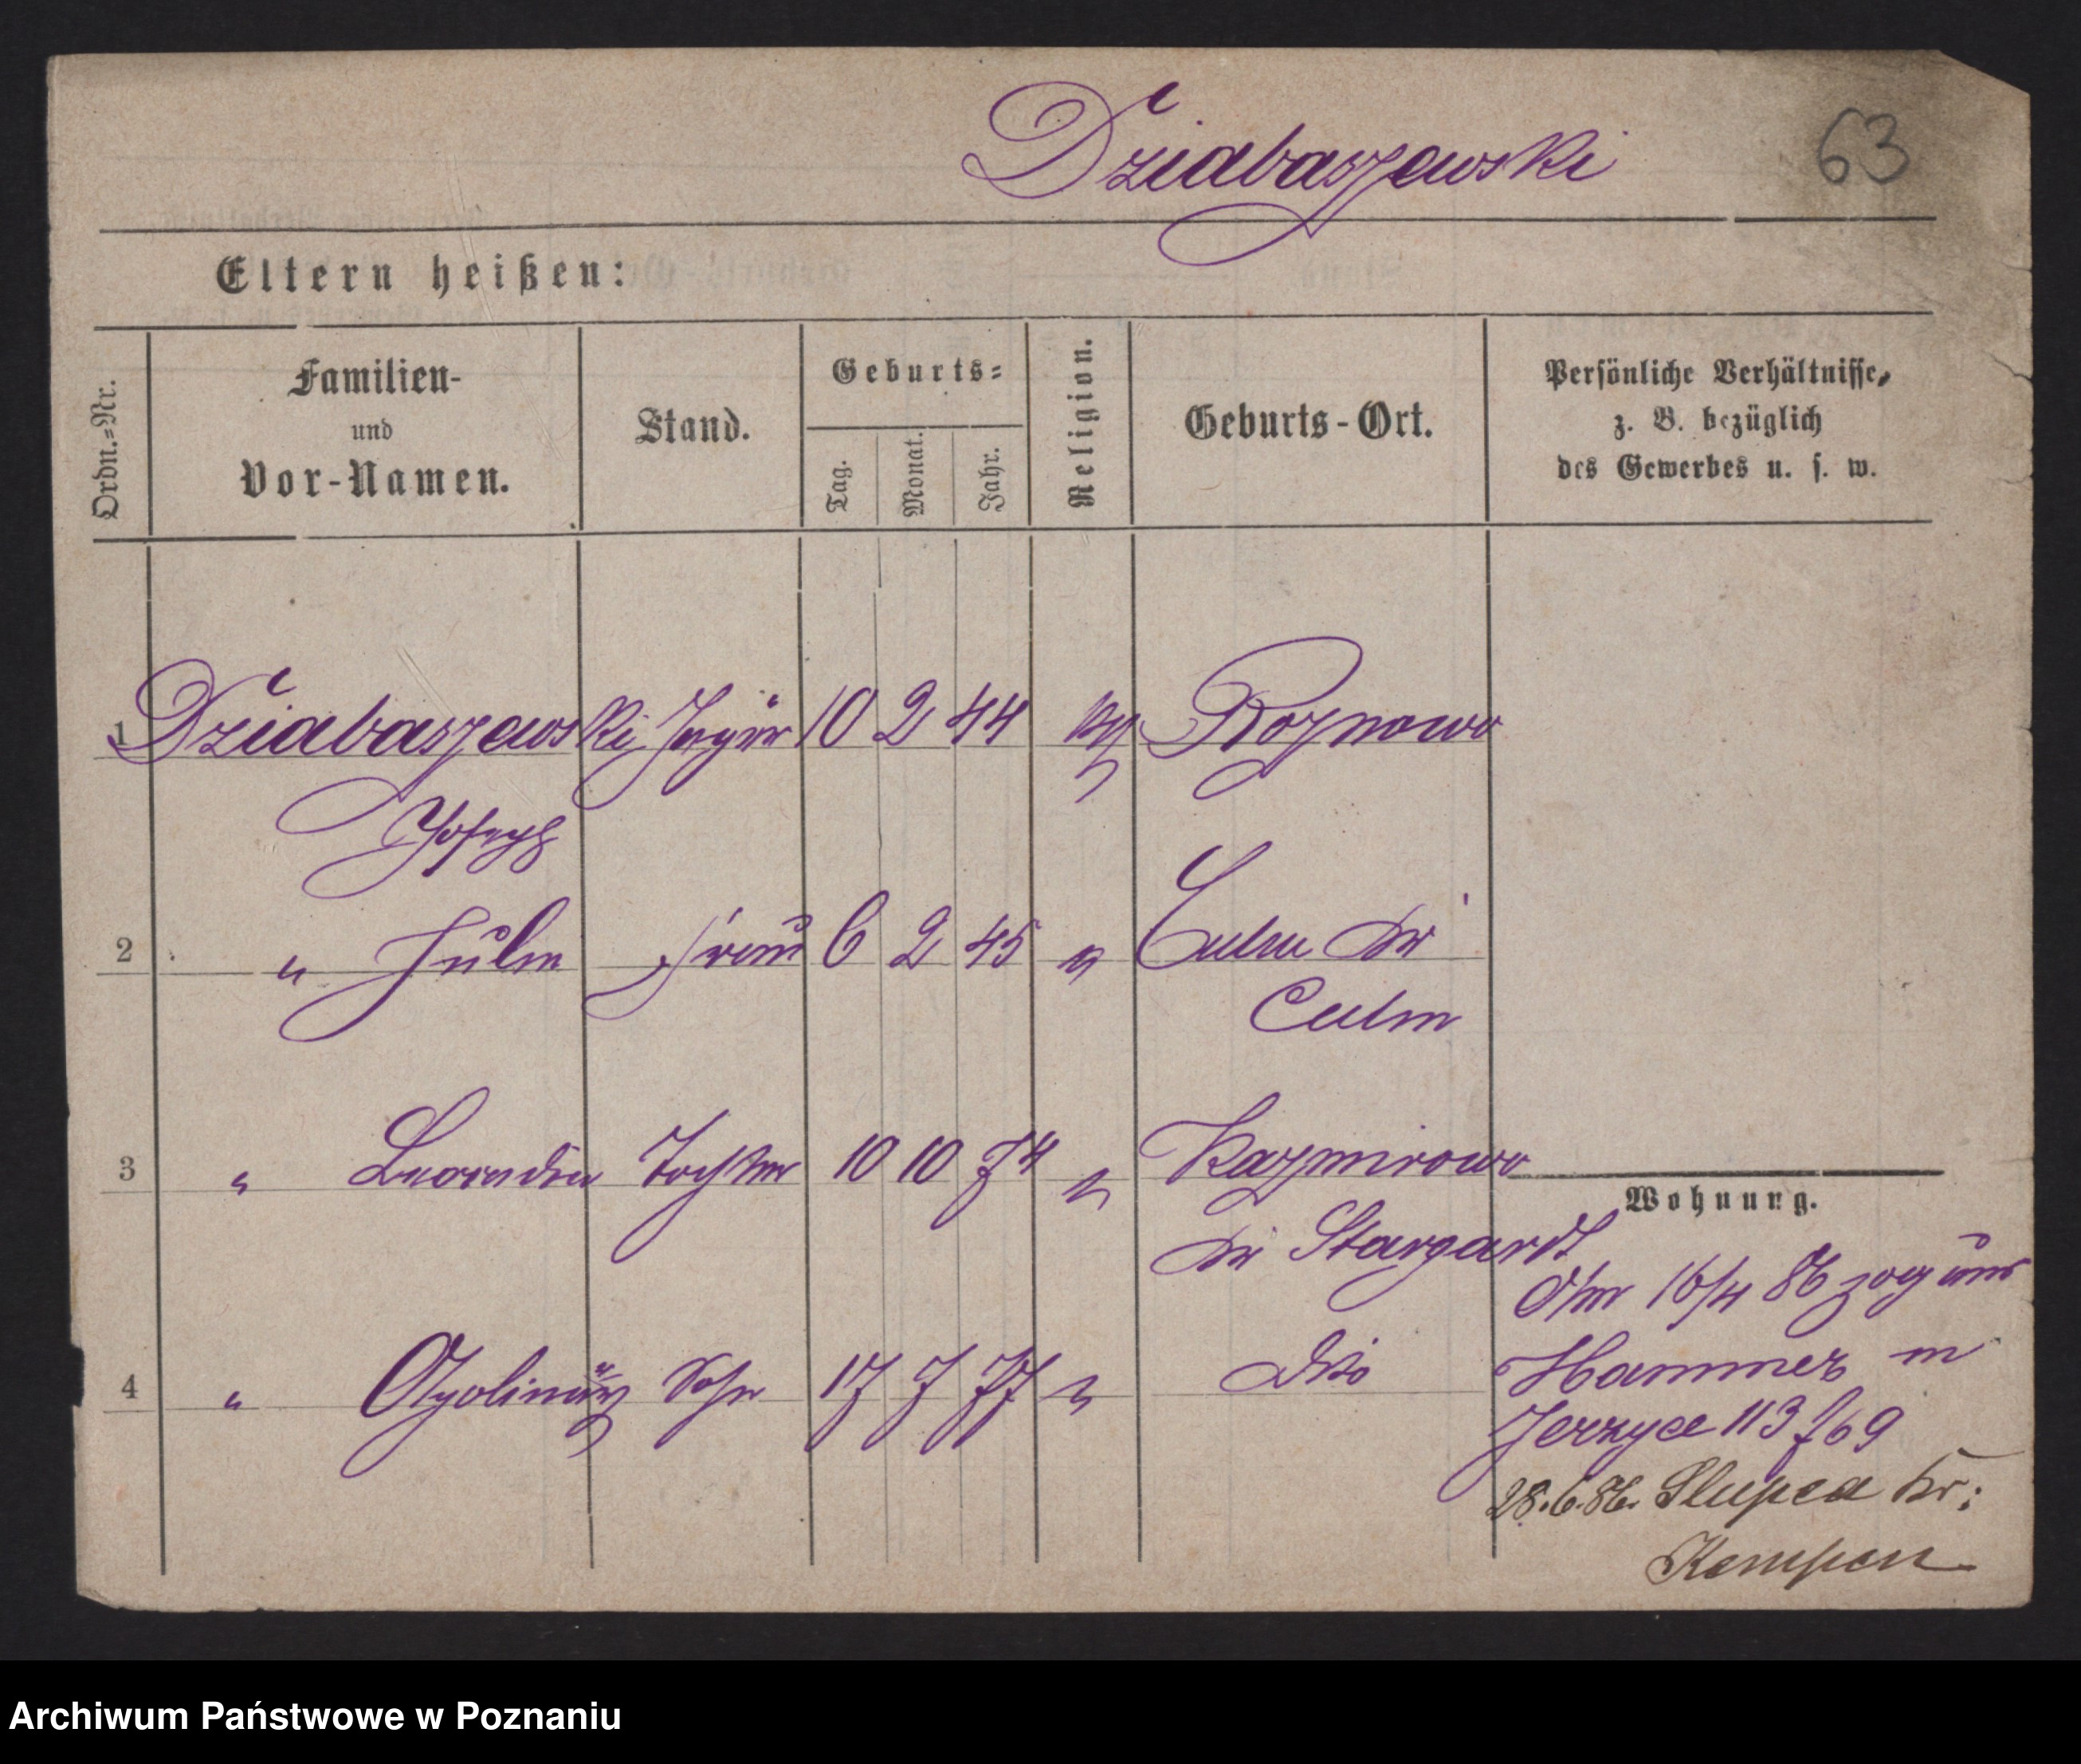 Dziabaszewski 63
Eltern heißen:
Ordn.=Nr.
Familien-
und
Vor-Namen.
Stand.
Geburts=
Tag.
Monat.
Jahr.
Religion.
Geburts-Ort.
Persönliche Verhältnisse,
z. B. bezüglich
des Gewerbes u. s. w.
1 Dziabaszewski 10 2 44 Roznowo
Joseph
2 " Frau 6 2 45 " Culm Kr
Culm
3 " Tochter 10 10 74 " Kazmirowo
Kr Stargardt
4 " Sohn 17 7 77 " Dto
Wohnung.
16/4 86 zog
Hammer in
Jerzyce 113 f 69
28.6.86. Slupca Kr:
Kempen
Archiwum Państwowe w Poznaniu